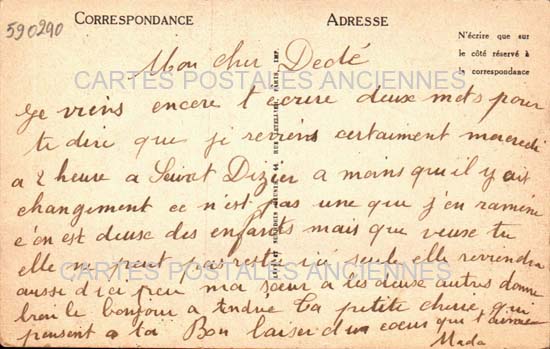 590290
CORRESPONDANCE
ADRESSE
N'écrire que sur
le côté réservé à
la correspondance
CARTES POSTALES ANCIENNES
Mon cher Dedé
Je viens encore t ecrire deux mots pour
te dire que je reviens certaiment mercredi
a 2 heure a Saint Dizier a moins qu'il y ait
changement ce n'est pas une que j'en ramène
c'en est deuse des enfants mais que veuse tu
elle ne peut pas reste ici seule elle reviendra
aussi d'ici peu ma sœur a les deuse autres donne
bien le bonjour a André ta petite cherie qui
pensent a toi Bon baiser d'un coeur qui
Mada
CARTES POSTALES ANCIENNES
CARTES POSTALES ANCIENNES
CARTES POSTALES ANCIENNES